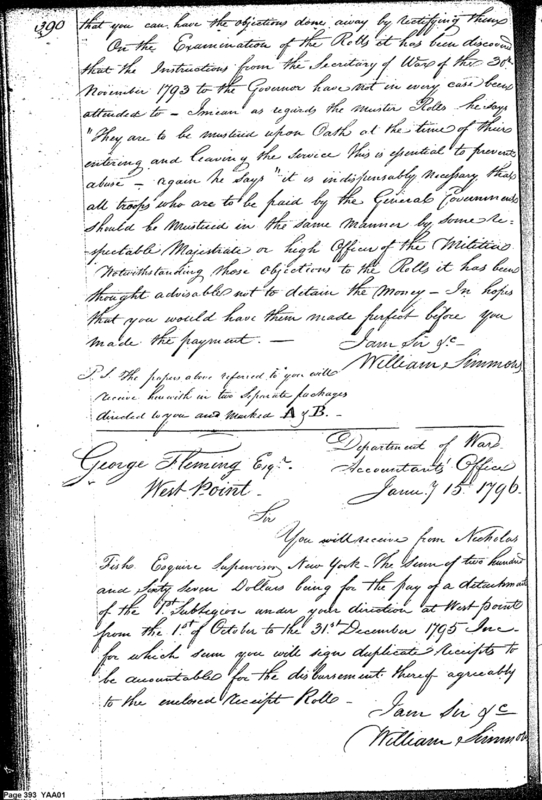 390
that you can have the objections done away by rectifying them
On the Examination of the Rolls it has been discovered
that the Instructions from the Secretary of War of the 30th
November 1793 to the Governor have not in every case been
attended to – I mean as regards the muster Rolls he says
"They are to be mustered upon Oath at the time of their
entering and leaving the service this is essential to prevent
abuse – again he says "it is indispensably necessary that
all troops who are to be paid by the General Government
should be Mustered in the same manner by some re-
-spectable Majestrate or high Officer of the Militia
Notwithstanding those objections to the Rolls it has been
thought advisable not to detain the Money – In hopes
that you would have them made perfect before you
made the payment. —
I am Sir &c
William Simmons
P.S. The papers above referred to you will
receive herewith in two Separate packages
directed to you and marked A & B. –
George Fleming Esqr.
West Point.
Department of War
Accountants Office
Janu.y 15. 1796.
Sir
You will receive from Nicholas
Fish Esquire Supervisor New York – The Sum of two hundred
and Sixty Seven Dollars being for the pay of a detachment
of the 1st Sublegion under your direction at West point
from the 1st of October to the 31st December 1795 Inc
for which sum you will sign duplicate receipts to
be accountable for the disbursement thereof agreeably
to the enclosed receipt Roll –
I am Sir &c
William Simmons
Page 393 YAA01